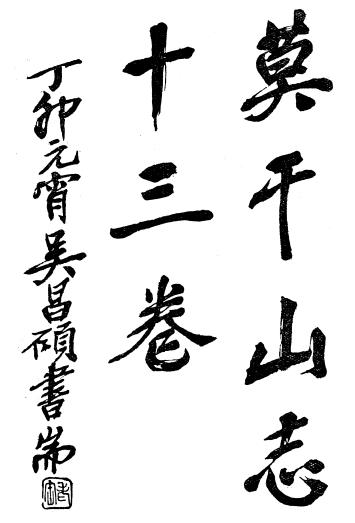 莫干山志
十三卷
丁卯元宵吴昌碩書耑